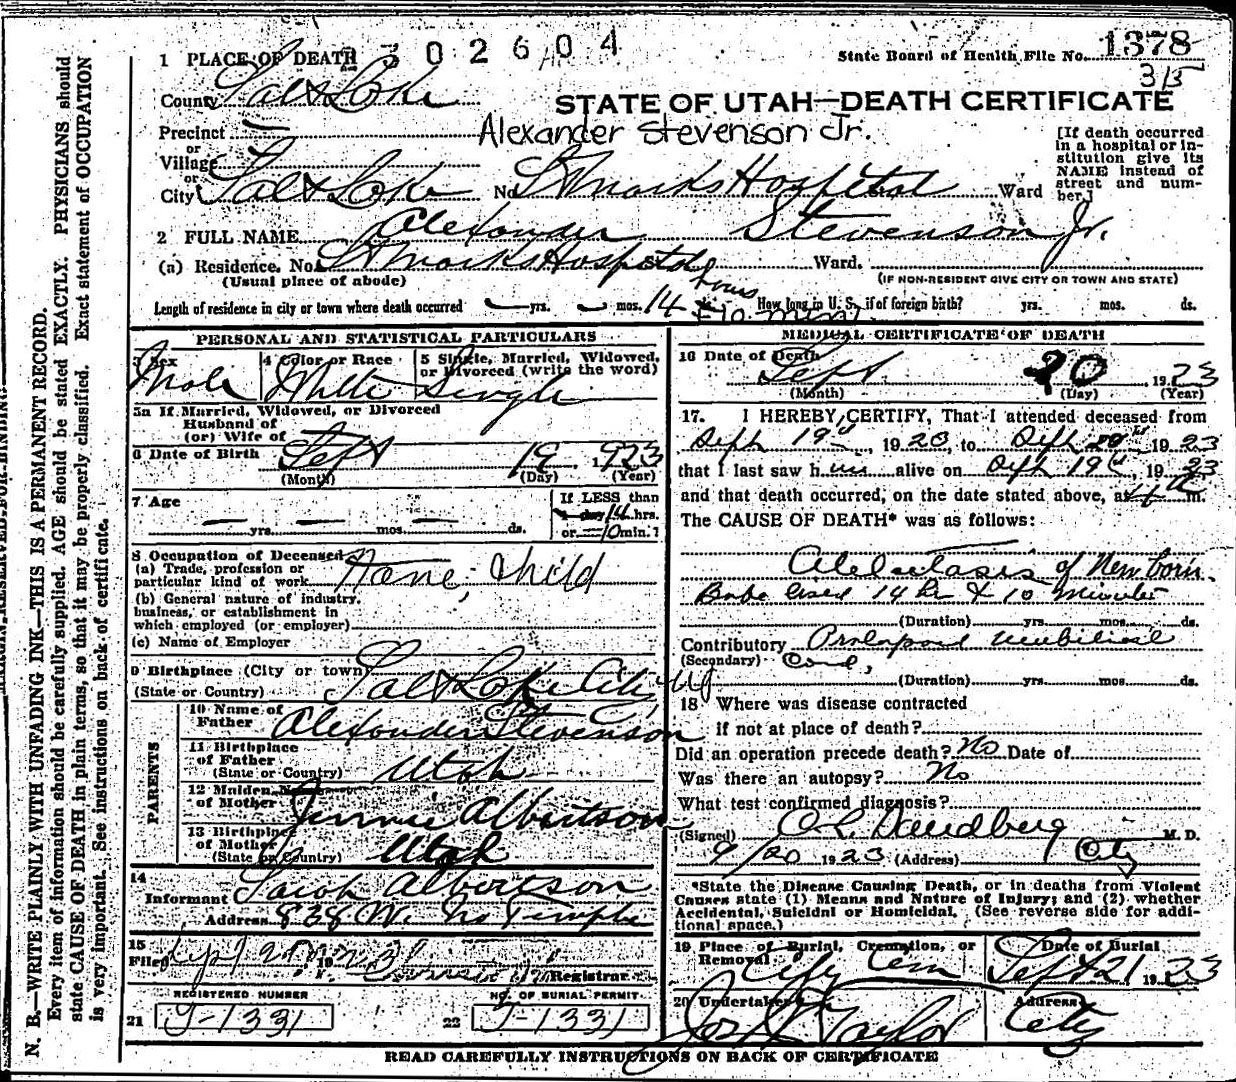 1 PLACE OF DEATH 2302604
State Board of Health File No. 1378
315
County Salt Lake
STATE OF UTAH—DEATH CERTIFICATE
Precinct
Alexander Stevenson Jr.
or
Village
or
City Salt Lake No. St Marks Hospital Ward
[If death occurred in a hospital or institution give its NAME instead of street and number.]
2 FULL NAME Alexander Stevenson Jr.
(a) Residence. No. St Marks Hospital Ward.
(Usual place of abode)
(IF NON-RESIDENT GIVE CITY OR TOWN AND STATE)
Length of residence in city or town where death occurred — yrs. — mos. 14 hours & 10 min. How long in U. S. if of foreign birth? yrs. mos. ds.
PERSONAL AND STATISTICAL PARTICULARS
3 Sex 4 Color or Race 5 Single, Married, Widowed, or Divorced (write the word)
Male White Single
5a If Married, Widowed, or Divorced
Husband of
(or) Wife of
6 Date of Birth Sept 19, 1923
(Month) (Day) (Year)
7 Age
— yrs. — mos. — ds.
If LESS than
day 14 hrs.
or 10 min. ?
8 Occupation of Deceased
(a) Trade, profession or
particular kind of work None; Child
(b) General nature of industry,
business, or establishment in
which employed (or employer)
(c) Name of Employer
9 Birthplace (City or town) Salt Lake City, Ut
(State or Country)
PARENTS
10 Name of Father Alexander Stevenson
11 Birthplace of Father Utah
(State or Country)
12 Maiden Name of Mother Jennie Albertson
13 Birthplace of Mother Utah
(State or Country)
14
Informant Sarah Albertson
Address 838 W. No Temple
15
Filed Sept 20 1923
Registrar
REGISTERED NUMBER NO. OF BURIAL PERMIT
21 J-1331 22 J-1331
MEDICAL CERTIFICATE OF DEATH
16 Date of Death Sept 20, 1923
(Month) (Day) (Year)
17. I HEREBY CERTIFY, That I attended deceased from
Seph 19th, 1923, to Seph 20th 1923
that I last saw him alive on Seph 19th, 1923
and that death occurred, on the date stated above, at 4 a m.
The CAUSE OF DEATH* was as follows:
Atelectasis of New born.
Babe lived 14 hr & 10 Minutes
(Duration) yrs. mos. ds.
Contributory Prolapsed umbilical
(Secondary) Cord,
(Duration) yrs. mos. ds.
18 Where was disease contracted
If not at place of death?
Did an operation precede death? No Date of
Was there an autopsy? No
What test confirmed diagnosis?
(Signed) M. D.
9/20 1923 (Address) City
*State the Disease Causing Death, or in deaths from Violent
Causes state (1) Means and Nature of Injury; and (2) whether
Accidental, Suicidal or Homicidal. (See reverse side for additional space.)
19 Place of Burial, Cremation, or Removal Date of Burial
City Cem Sept 21 1923
20 Undertaker Address
Jos Wm Taylor City
READ CAREFULLY INSTRUCTIONS ON BACK OF CERTIFICATE
MARGIN RESERVED FOR BINDING
N. B.—WRITE PLAINLY WITH UNFADING INK—THIS IS A PERMANENT RECORD.
Every item of information should be carefully supplied. AGE should be stated EXACTLY. PHYSICIANS should
state CAUSE OF DEATH in plain terms, so that it may be properly classified. Exact statement of OCCUPATION
is very important. See instructions on back of certificate.